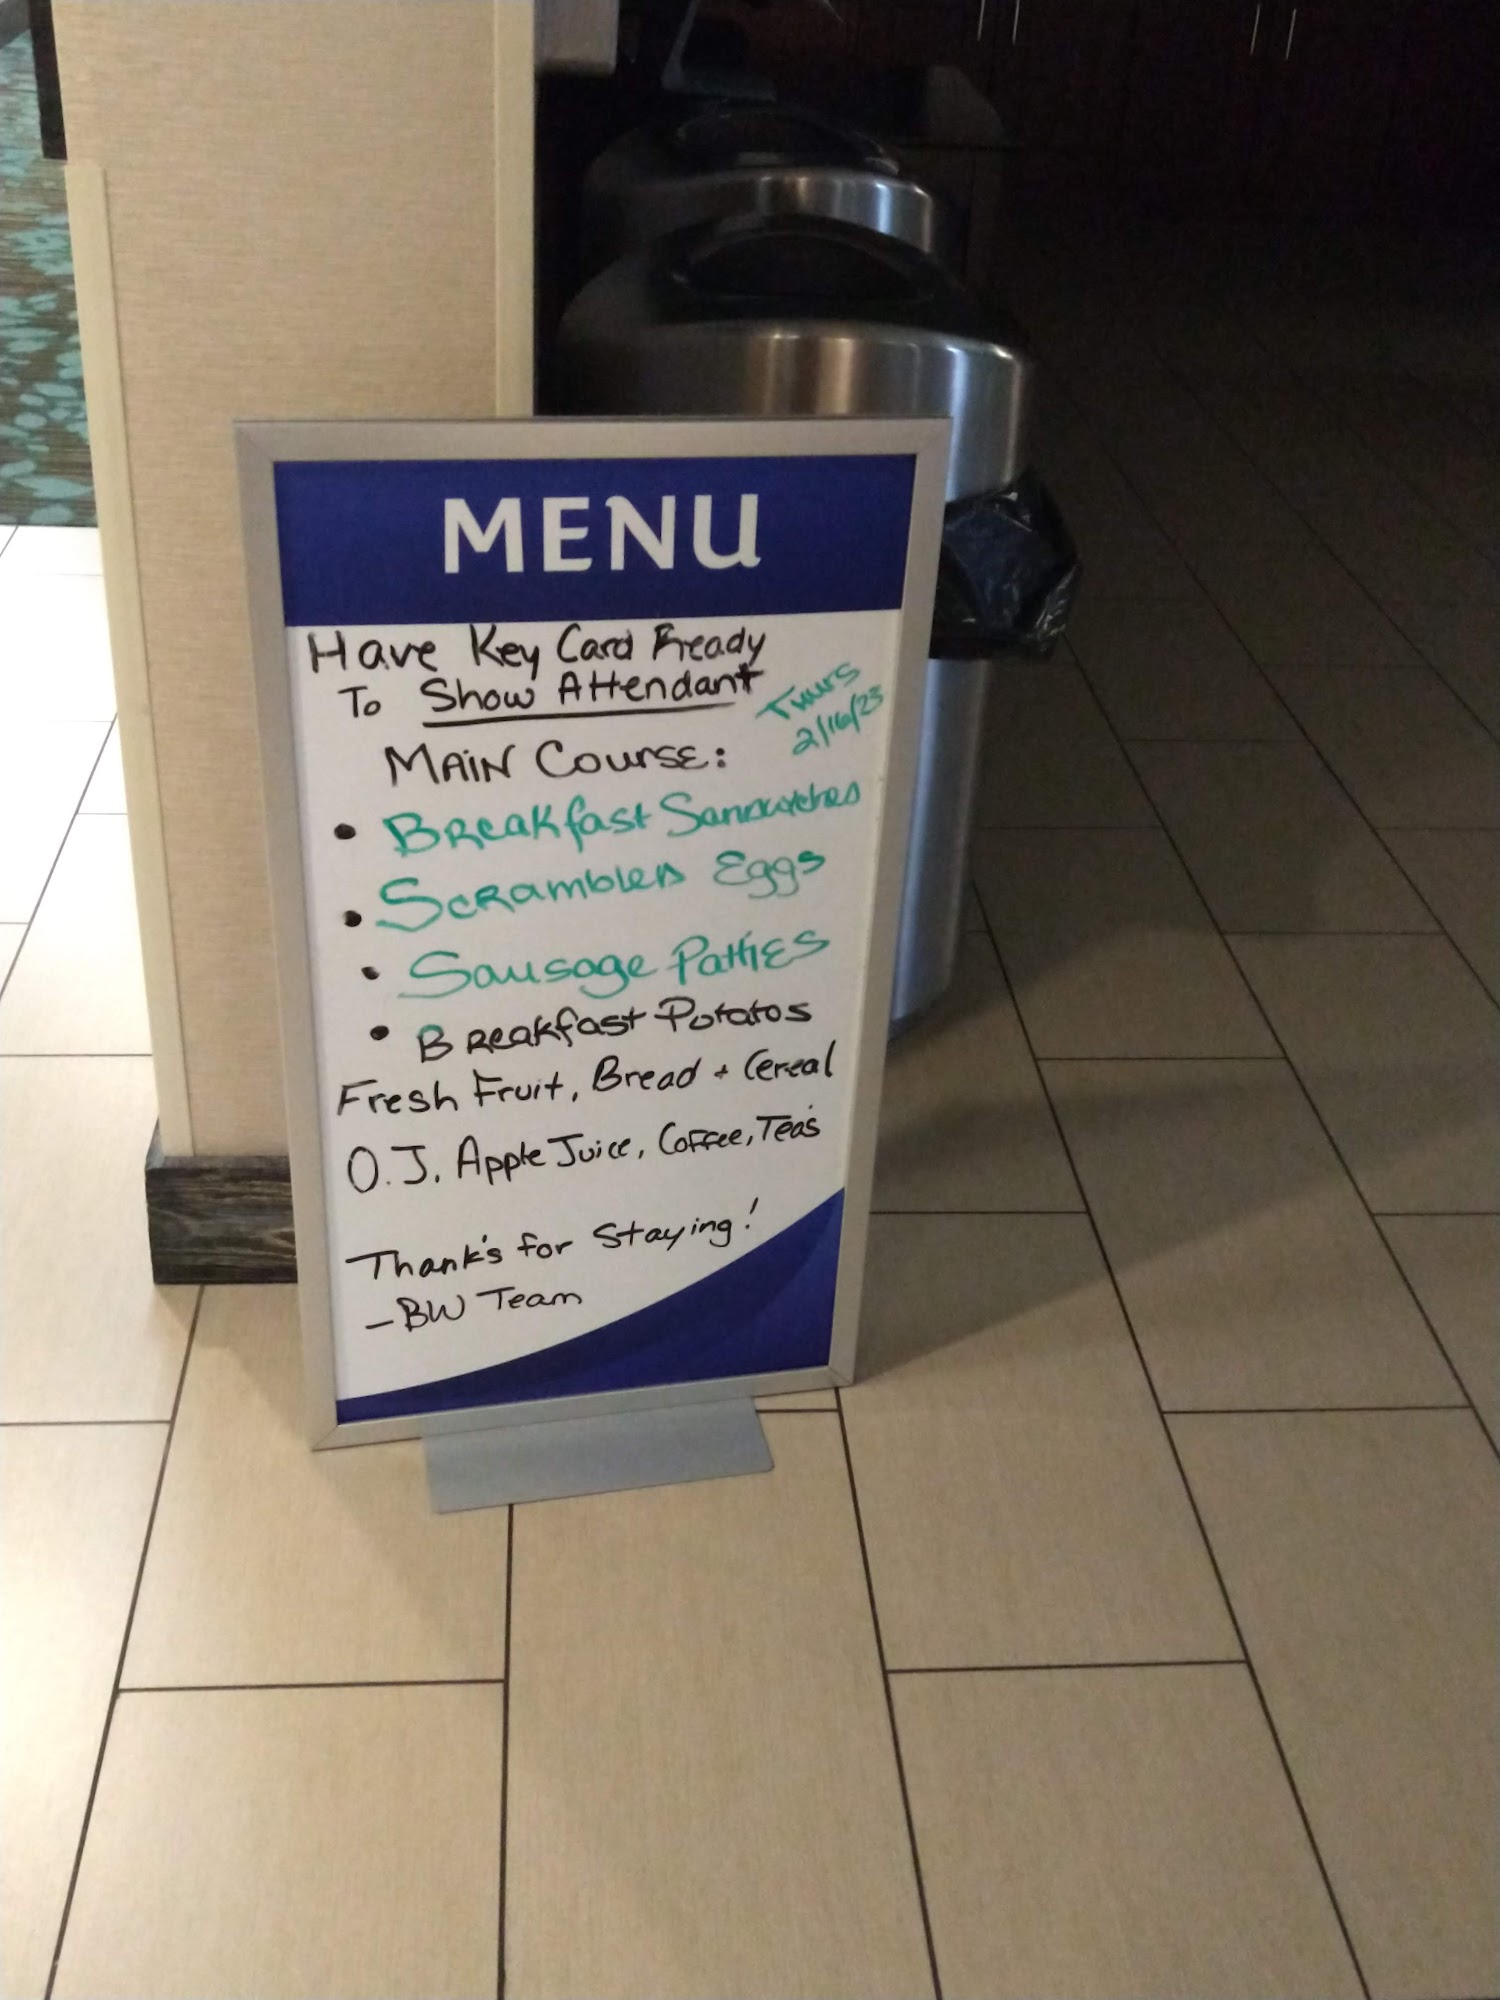 MENU
Have Key Card Ready
To Show Attendant
Thurs
2/16/23
MAIN Course:
• Breakfast Sandwiches
• Scrambled Eggs
• Sausage Patties
• Breakfast Potatos
Fresh Fruit, Bread + Cereal
O.J. Apple Juice, Coffee, Tea's
Thank's for Staying!
- BW Team